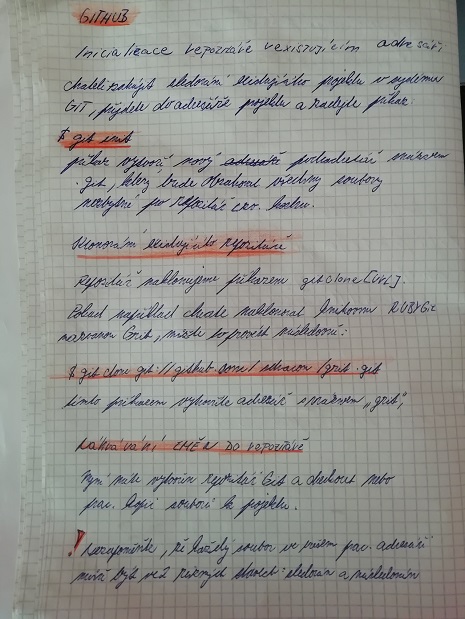 GITHUB
Inicializace repozitáře v existujícím adresáři
Chcete-li zahájit sledování existujícího projektu v systému
GIT, přejdete do adresáře projektu a zadejte příkaz
$ git init
příkaz vytvoří nový podadresář s názvem
.git, který bude obsahovat všechny soubory
nezbytné pro repozitář
Klonování existujícího repozitáře
Repozitář naklonujeme příkazem git clone [URL].
Pokud například chcete naklonovat knihovnu RUBYGit
nazvanou Grit, můžete to provést následovně:
$ git clone git://github.com/ /grit.git
tímto příkazem vytvoříte adresář s názvem „grit",
ZMĚN DO repozitáře
Nyní máte vytvořen repozitář Git a checkout nebo
prac. kopii souborů k projektu.
! Nezapomeňte, že každý soubor ve vašem prac. adresáři
může být ve různých stavech: sledován a nesledován